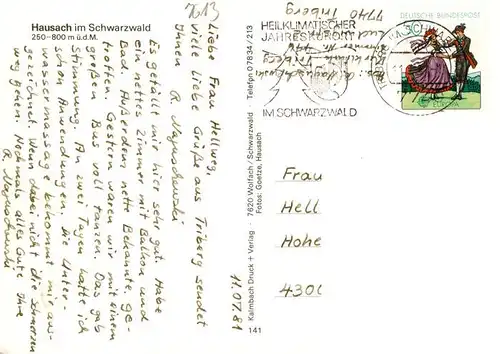 Hausach im Schwarzwald
250-800 m ü.d.M.
7613
Liebe Frau Hellweg,
viele liebe Grüße aus Triberg sendet
Ihnen R.
Es gefällt mir hier sehr gut. Habe
ein nettes Zimmer mit Balkon und
Bad. Außerdem nette Bekannte, ge-
troffen. Gestern waren wir mit einem
großen Bus voll tanzen. Das gab
Stimmung. An zwei Tagen hatte ich
schon Anwendungen. Die Unter-
wassermassage bekommt mir aus-
gezeichnet. Wenn dabei nicht die Schmerzen
weg gehen. Nochmals alles Gute Ihre
R.
Kalmbach Druck + Verlag · 7620 Wolfach/Schwarzwald Telefon 07834/213
Fotos: Goetze, Hausach
141
11.07.81
7740
Triberg
HEILKLIMATISCHER
JAHRESKURORT
IM SCHWARZWALD
DEUTSCHE BUNDESPOST
EUROPA
Frau
Hell
Hohe
4300